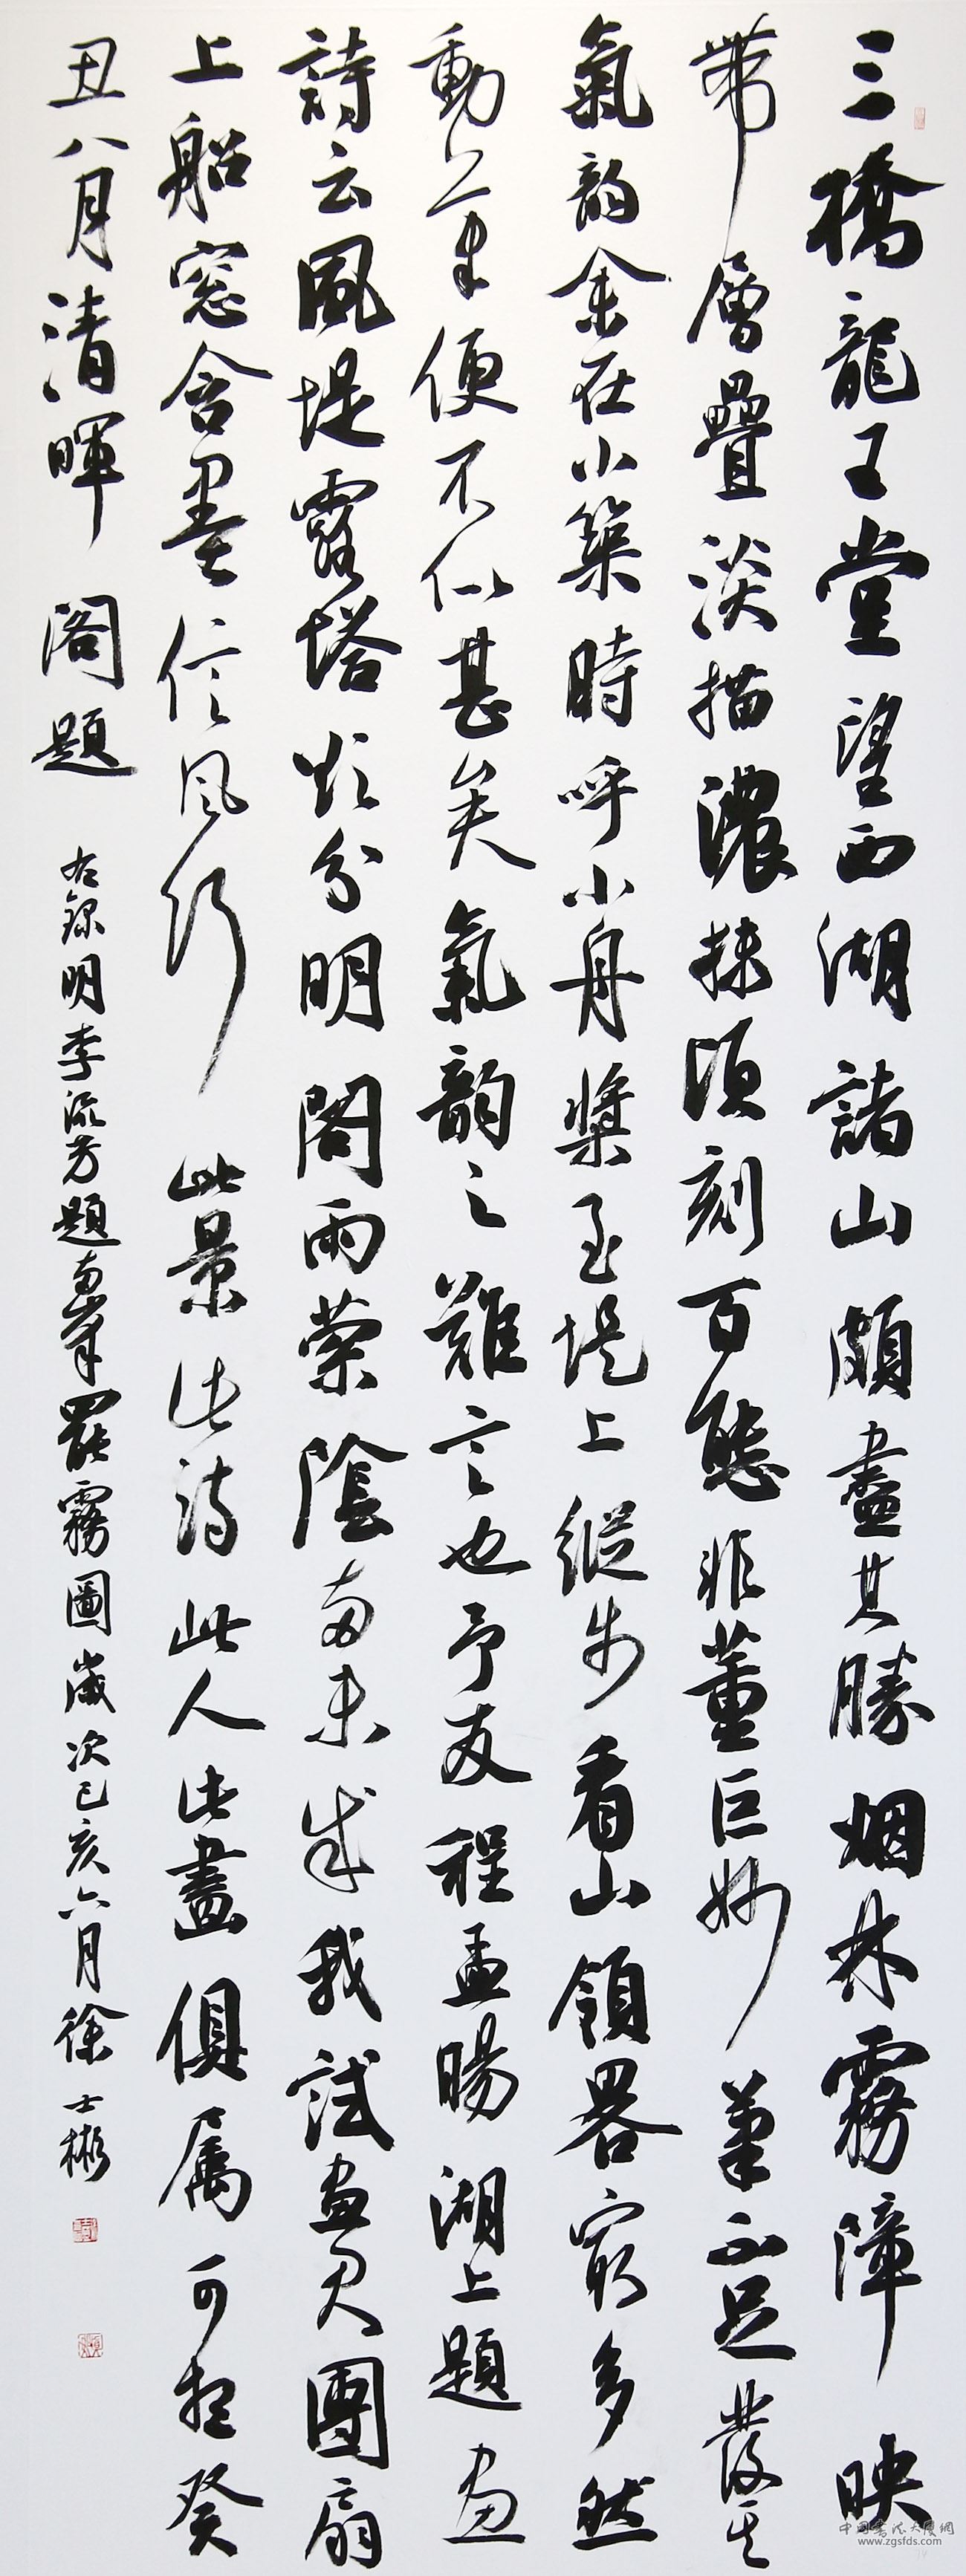 三橋龍王堂望西湖諸山頗盡其勝烟林霧障映
帶層疊淡描濃抹頃刻百態非董巨妙筆不足發其
氣韵余在小築時呼小舟槳至堤上縱步看山領畧窮多然
動筆便不似甚矣氣韵之難言也予友程孟暘湖上題画
詩云風堤露塔欲分明閣雨縈陰両未成我試画君團扇
上船窓含墨信風行此景此詩此人此畫俱属可想癸
丑八月清暉閣題
右録明李流芳題南峯罷霧圖歲次己亥六月徐士彬
中国書法大厦網
www.zgsfds.com